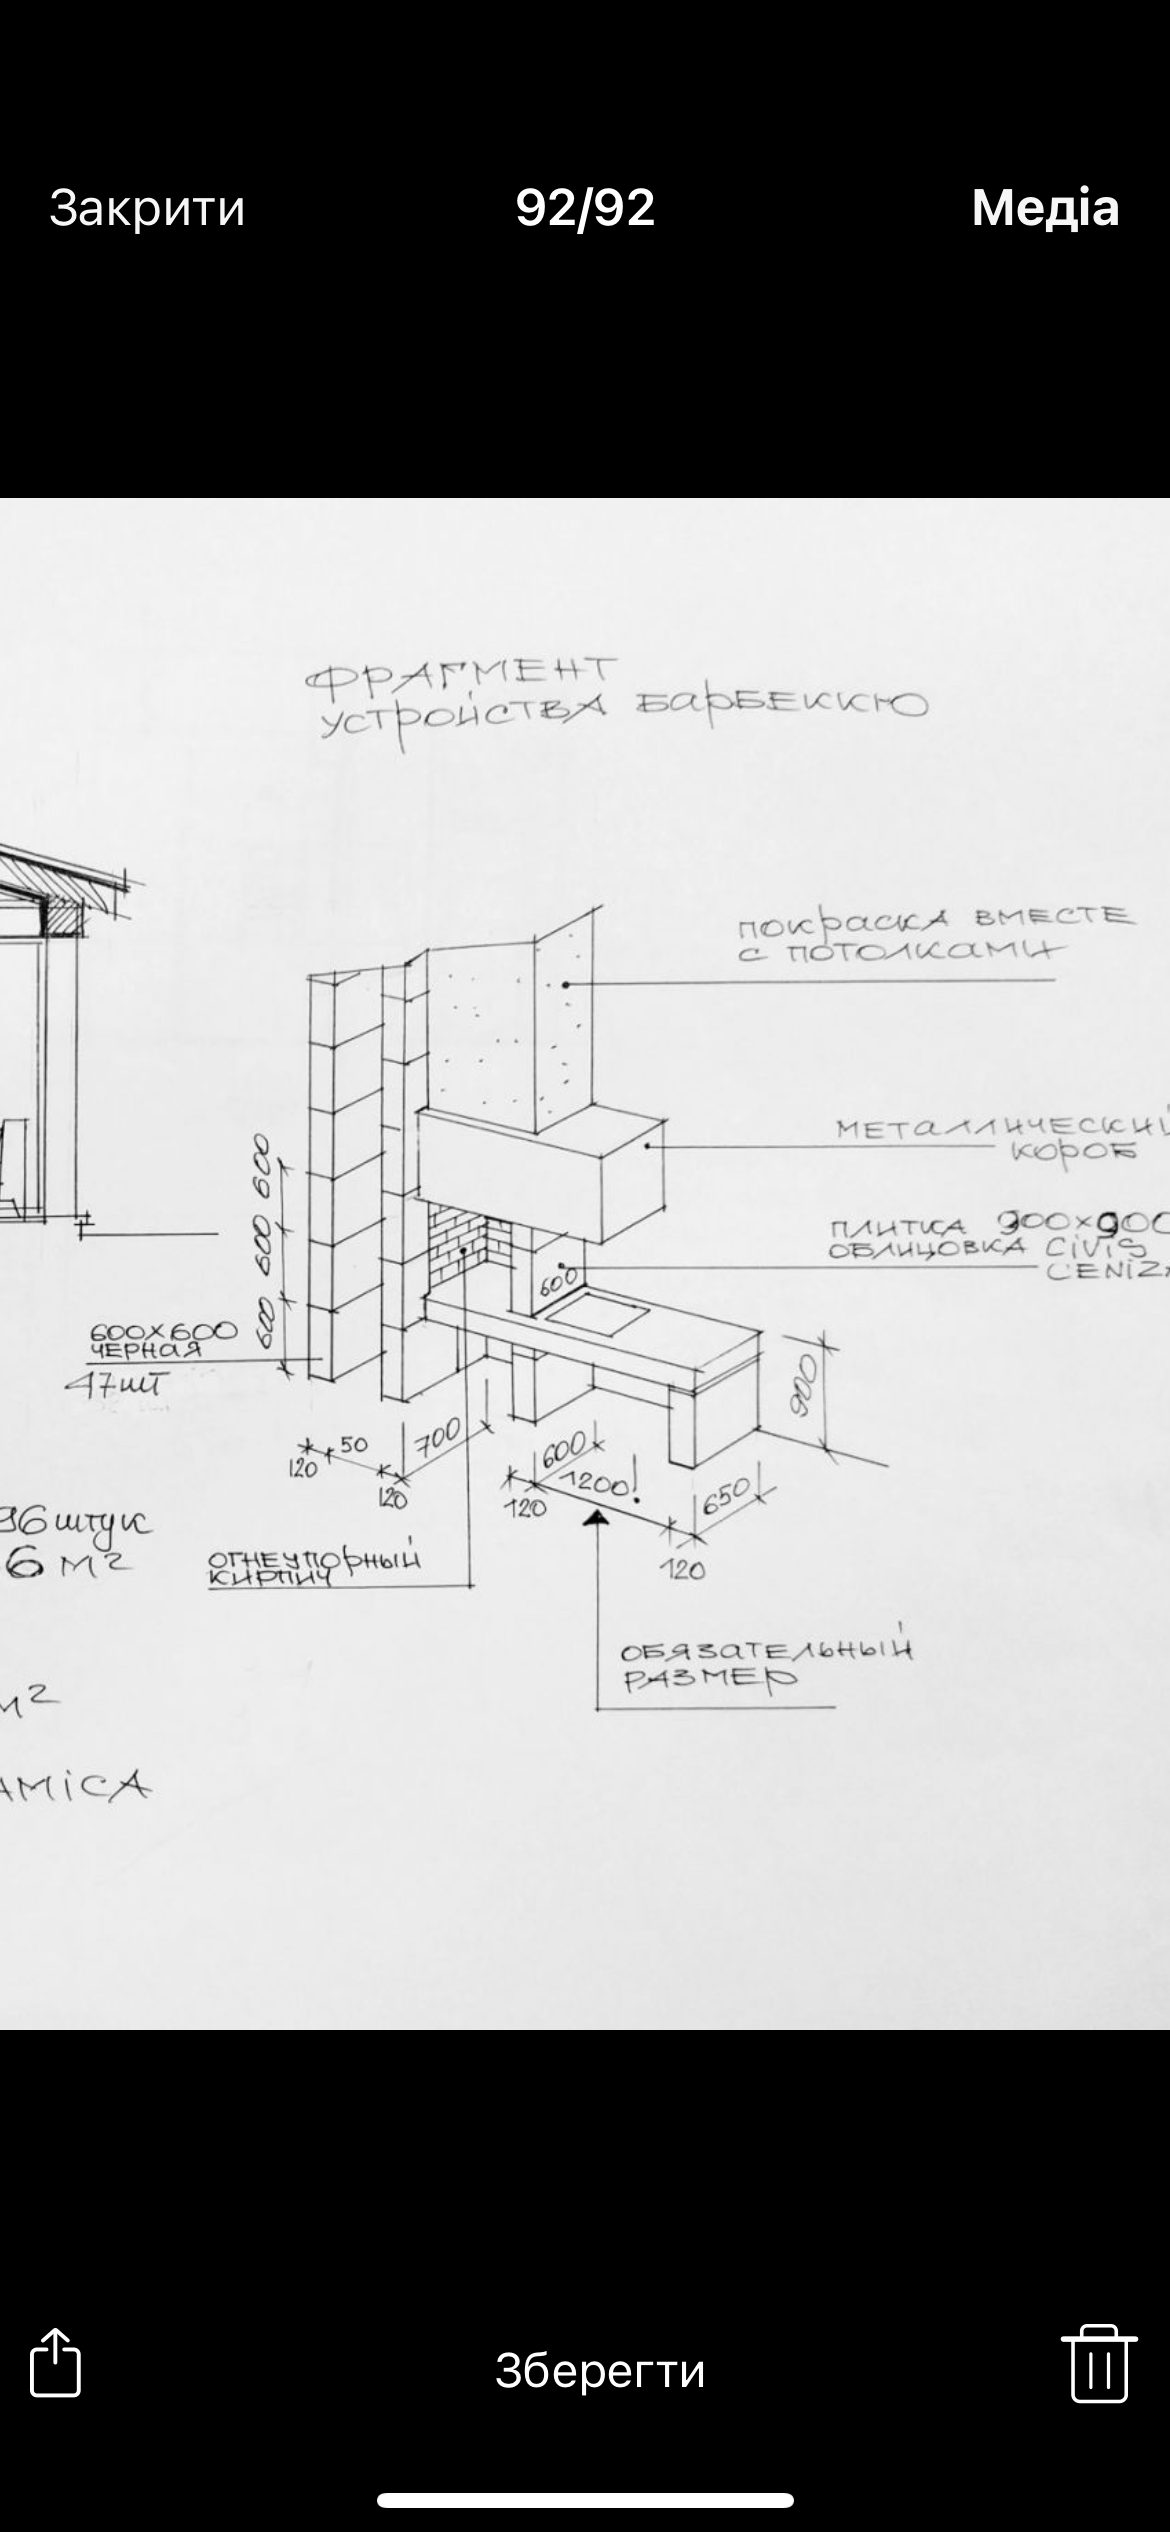 Закрити
92/92
Медіа
ФРАГМЕНТ
УСТРОЙСТВА БАРБЕККЮ
ПОКРАСКА ВМЕСТЕ
С ПОТОЛКАМИ
МЕТАЛЛИЧЕСКИЙ
КОРОБ
ПЛИТКА 900х900
ОБЛИЦОВКА CIVIS
CENIZA
600
600
600
600
600Х600
ЧЕРНАЯ
47шт
900
120
50
120
700
120
600
1200!
650
120
96 штук
6 м2
ОГНЕУПОРНЫЙ
КИРПИЧ
ОБЯЗАТЕЛЬНЫЙ
РАЗМЕР
м2
AMICA
Зберегти